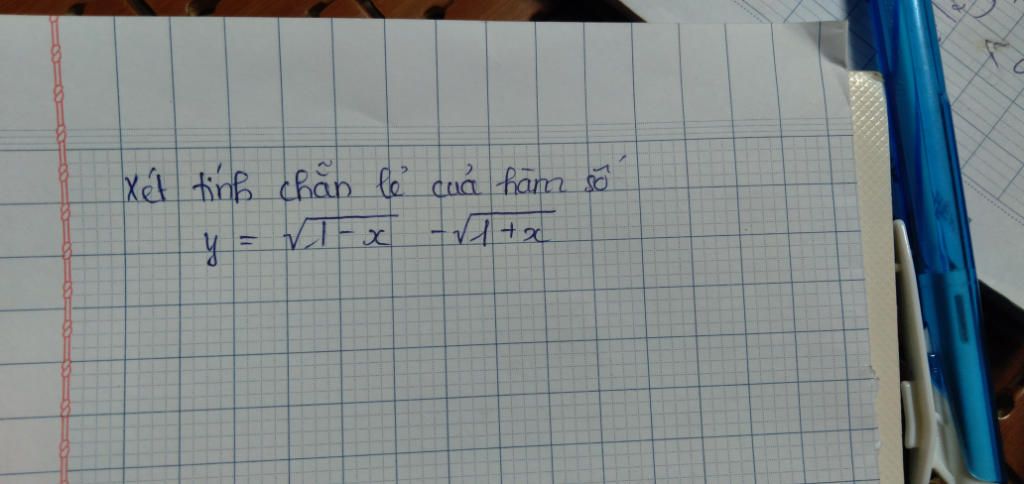 Xét tính chẵn lẻ của hàm số
y = √1-x - √1+x